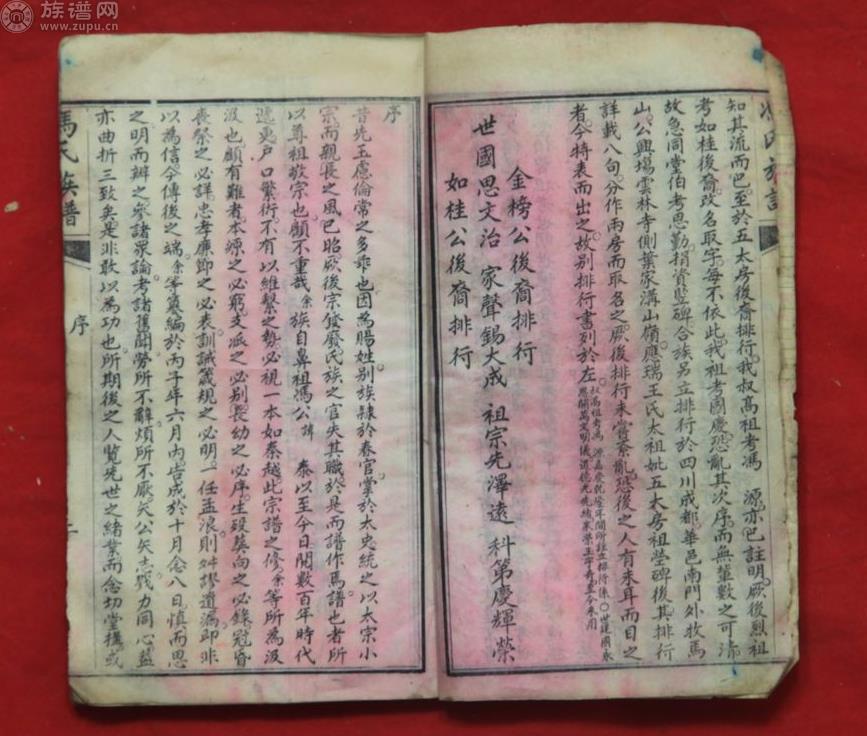 族谱网
www.zupu.cn
知其流而巳至於五太房後裔排行我叔高祖考馮 源亦巳註明厥後烈祖
考如桂後裔改名取字每不依此我祖考國慶恐亂其次序而無輩數之可清
故急同堂伯考思勤捐資豎碑合族另立排行於四川成都華邑南門外牧馬
山公興塲雲林寺側葉家溝山嶺應瑞王氏太祖妣五太房祖塋碑後其排行
詳載八句分作兩房而取名之厥後排行未嘗紊亂恐後之人有未耳而目之
者今特表而出之故别排行書列於左
金榜公後裔排行
世國思文治 家聲錫大成 祖宗先澤遠 科第慶輝榮
如桂公後裔排行
馮氏族譜
序
序
昔先王慮倫常之多乖也因為賜姓别族隸於春官掌於太史統之以太宗小
宗而親長之風巳昭厥後宗發廢氏族之官失其職於是而譜作焉譜也者所
以尊祖敬宗也顧不重哉余族自鼻祖馮公諱 泰以至今日閱數百年時代
遞更户口繁衍不有以維繫之勢必視一本如秦越此宗譜之修余等所為汲
汲也顧有難者本源之必窮支派之必别長幼之必序生殁葬向之必錄冠昏
喪祭之必詳忠孝廉節之必表訓誡箴規之必明一任孟浪則舛謬遺漏即非
以為信今傳後之端余等纂編於丙子年六月内告成於十月念八日慎而思
之明而辨之參諸眾論考諸舊聞勞所不辭煩所不厭矢公矢志戮力同心蓋
亦曲折三致矣是非敢以為功也所期後之人覽先世之緒業而念切堂構或